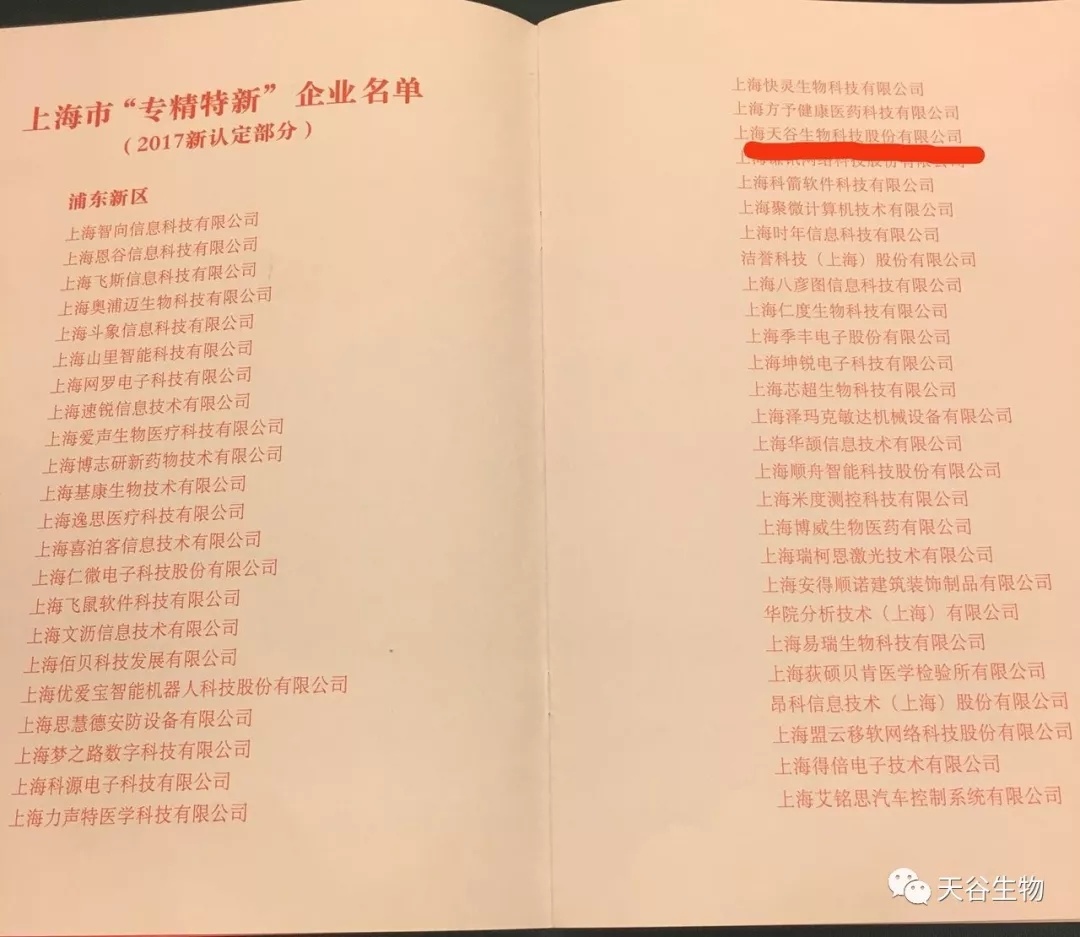 上海市“专精特新”企业名单
（2017新认定部分）
浦东新区
上海智向信息科技有限公司
上海恩谷信息科技有限公司
上海飞斯信息科技有限公司
上海奥浦迈生物科技有限公司
上海斗象信息科技有限公司
上海山里智能科技有限公司
上海网罗电子科技有限公司
上海速锐信息技术有限公司
上海爱声生物医疗科技有限公司
上海博志研新药物技术有限公司
上海基康生物技术有限公司
上海逸思医疗科技有限公司
上海喜泊客信息技术有限公司
上海仁微电子科技股份有限公司
上海飞鼠软件科技有限公司
上海文沥信息技术有限公司
上海佰贝科技发展有限公司
上海优爱宝智能机器人科技股份有限公司
上海思慧德安防设备有限公司
上海梦之路数字科技有限公司
上海科源电子科技有限公司
上海力声特医学科技有限公司
上海快灵生物科技有限公司
上海方予健康医药科技有限公司
上海天谷生物科技股份有限公司
网络科技股份有限公司
上海科箭软件科技有限公司
上海聚微计算机技术有限公司
上海时年信息科技有限公司
洁誉科技（上海）股份有限公司
上海八彦图信息科技有限公司
上海仁度生物科技有限公司
上海季丰电子股份有限公司
上海坤锐电子科技有限公司
上海芯超生物科技有限公司
上海泽玛克敏达机械设备有限公司
上海华颉信息技术有限公司
上海顺舟智能科技股份有限公司
上海米度测控科技有限公司
上海博威生物医药有限公司
上海瑞柯恩激光技术有限公司
上海安得顺诺建筑装饰制品有限公司
华院分析技术（上海）有限公司
上海易瑞生物科技有限公司
上海荻硕贝肯医学检验所有限公司
昂科信息技术（上海）股份有限公司
上海盟云移软网络科技股份有限公司
上海得倍电子技术有限公司
上海艾铭思汽车控制系统有限公司
天谷生物